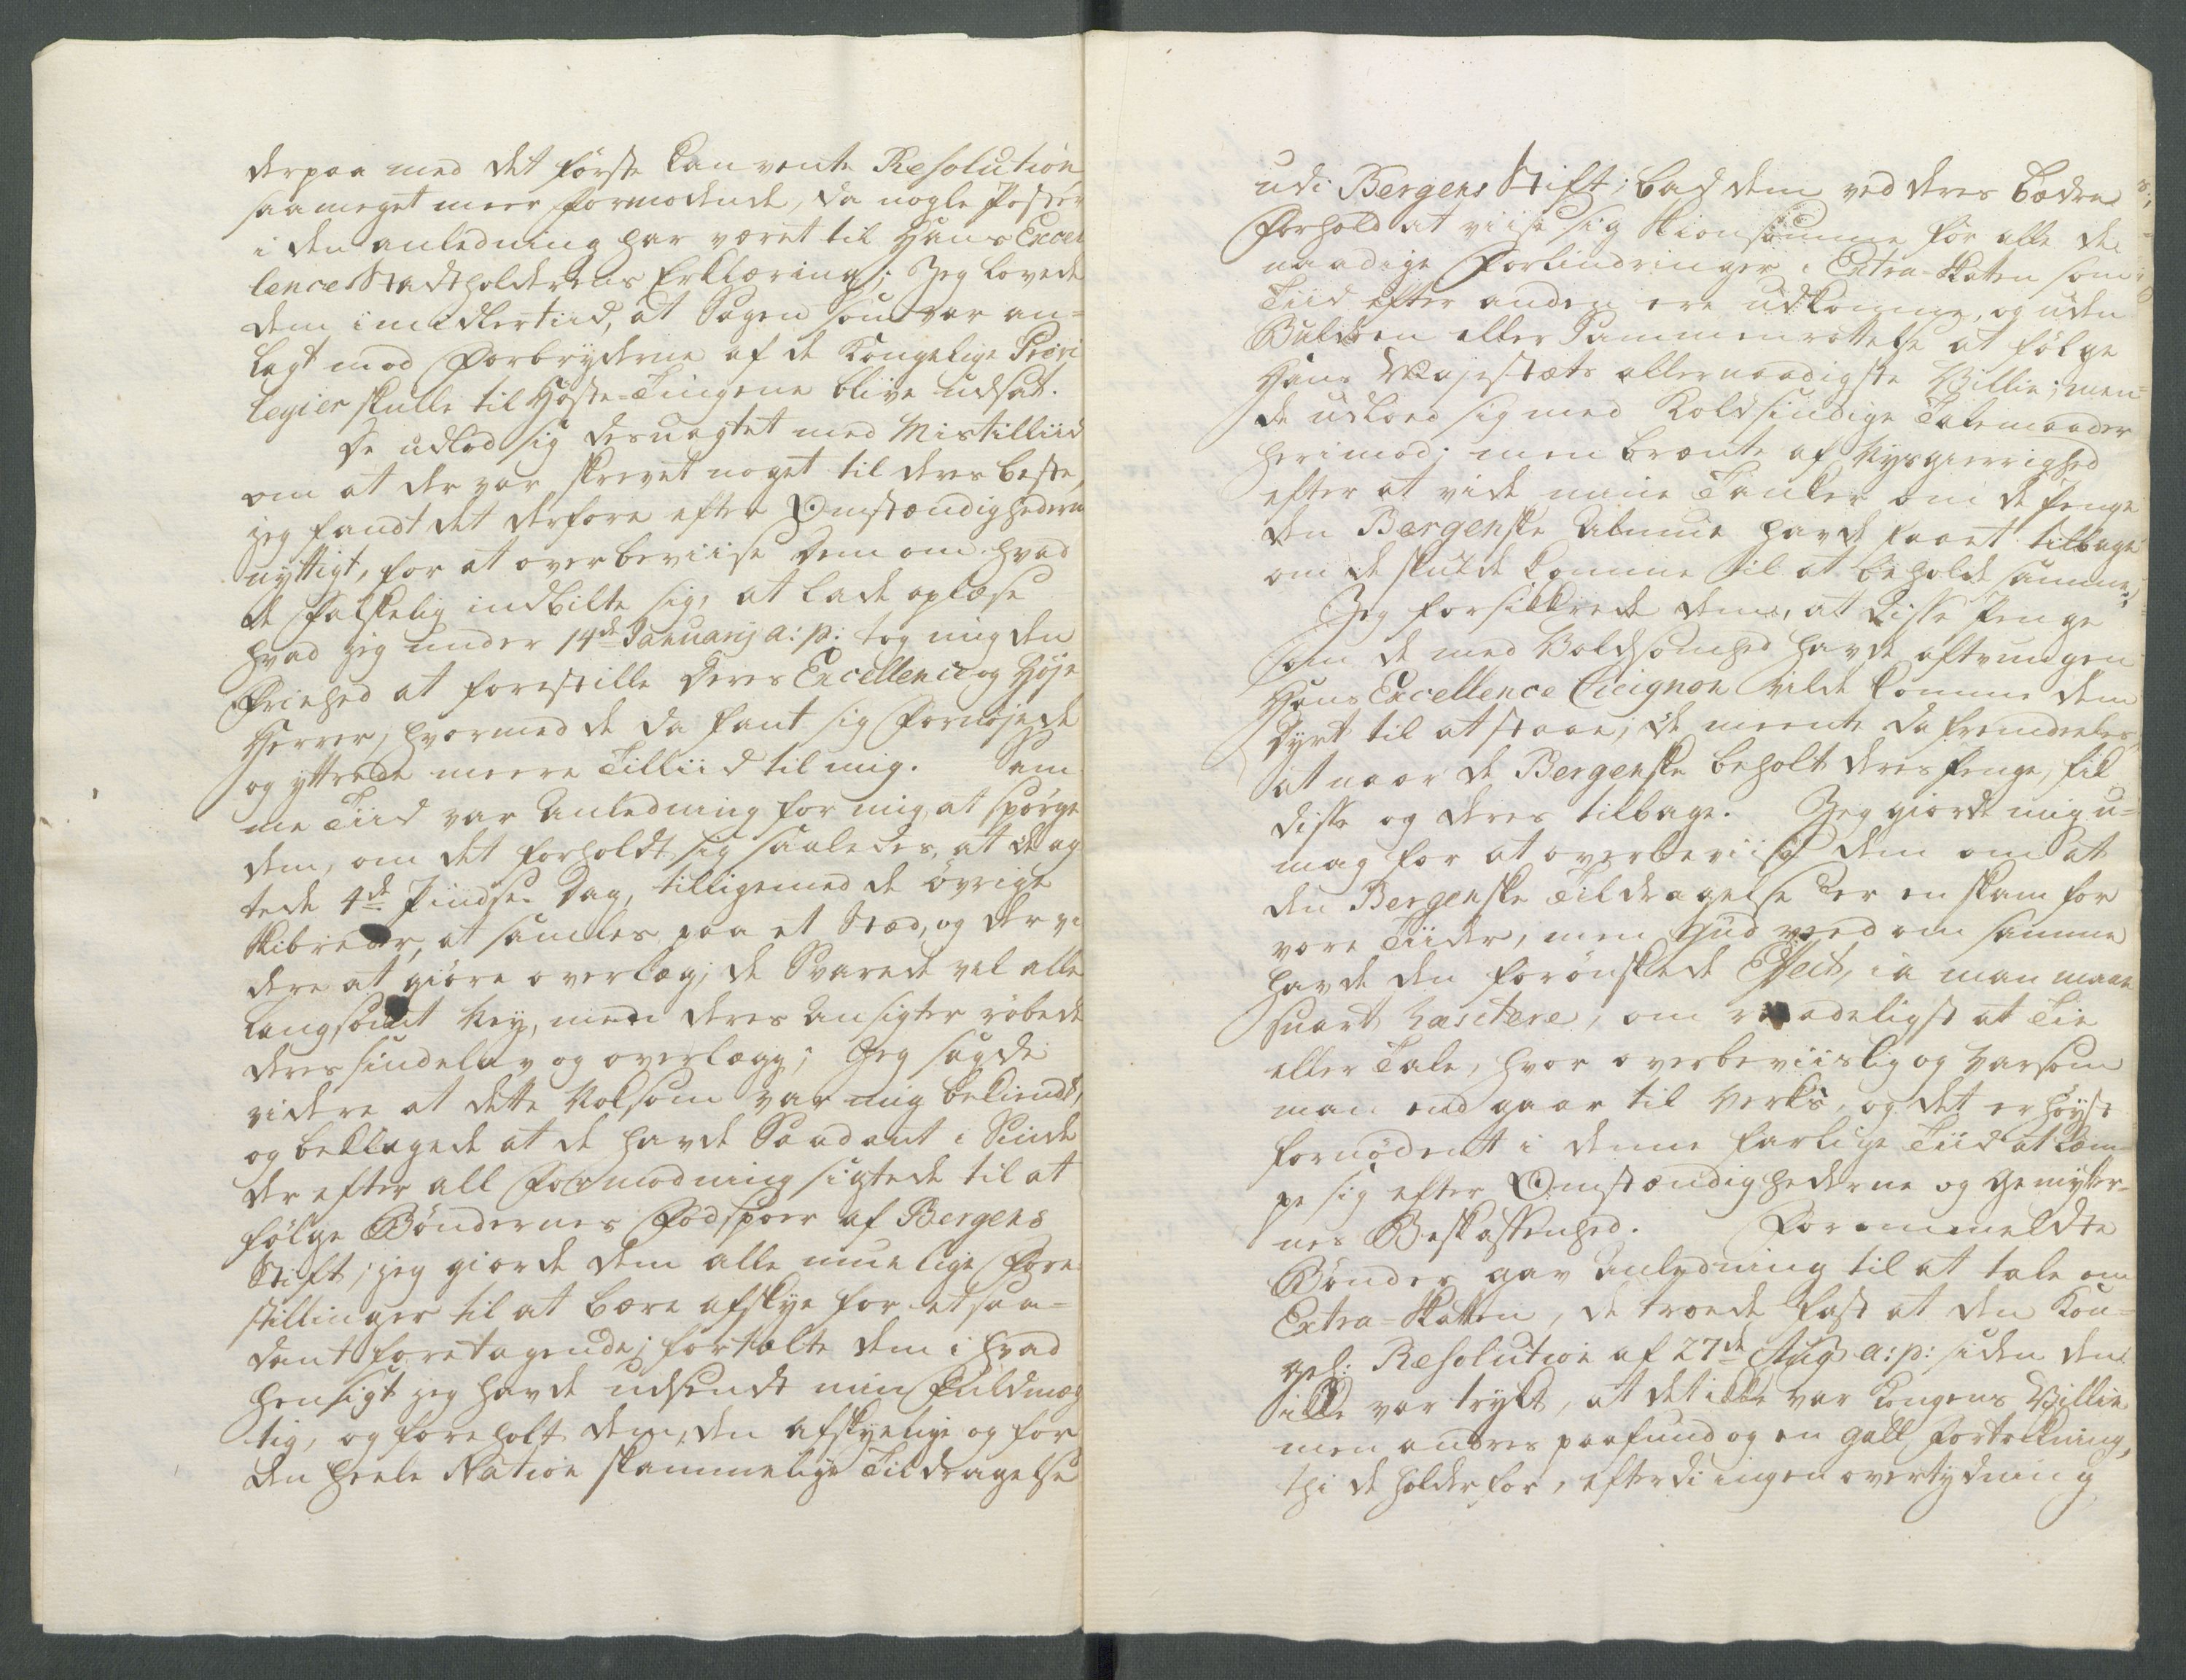 derpaa med det første kan vente Resolution
saa meget meer formodende, da nogle Poster
i den anledning har været til Hans Excel
lence Stadtholderens Erklæring; Jeg lovede
dem imidlertiid, at Sagen som var an=
lagt mod Forbryderne af de Kongelige Privi
legier skulle til Høste-Tingene blive udsat.
De udlod sig desuagtet med Mistilliid
om at der var skrevet noget til deres beste,
jeg fandt det derfore efter Omstændighederne
nyttigt, for at overbeviise dem om hvad
de falskelig indbilte sig, at lade oplæse
hvad jeg under 14de Januarij a: p: tog mig den
Friehed at forestille Deres Excellence og Høje
Herrer, hvormed de da fant sig fornøjede
og yttrede meere Tilliid til mig. Sam
me Tiid var Anledning for mig at spørge
dem, om det forholdt sig saaledes, at de ag
tede 4de Pindse Dag, tilligemed de øvrige
Skibreder, at samles paa et Stæd, og der vi
dere at giøre overlæg; de Svarede vel alle
langsomt Ney, men deres Ansigter røbede
deres sindelav og overlæg; Jeg sagde
videre at dette Volsom var mig bekiendt,
og beklagede at de havde Saadant i Sinde
der efter all Formodning sigtede til at
følge Bøndernes Fodspoer af Bergens
Stift; jeg giorde dem alle muelige Fore
stillinger til at bære afskye for et saa=
dant foretagende; fortalte dem i hvad
hensigt jeg havde udsendt min Fuldmæg
tig, og foreholt dem, den afskyelige og for
den heele Nation skammelige Tildragelse
udi Bergens Stift; bad dem ved deres bedre
Forhold at viise sig skionsomme for alle de
naadige Forlindringer i Extra-Skatten som
Tiid efter anden ere udkomne, og uden
Bulder eller Sammenrottelse at følge
Hans Majestæts allernaadigste Villie; men
de udloed sig med Koldsindige Talemaader
herimod; men brænte af Nysgierrighed
efter at vide mine Tanker om de Penge
den Bergenske Almue havde faaet tilbage
om de skulde komme til at beholde samme;
Jeg forsikkrede dem, at disse Penge
som de med Voldsomhed havde aftvungen
Hans Excellence Cicignon vilde komme dem
dyrt til at staae; de meente da fremdeeles,
at naar de Bergenske beholt deres Penge, fik
disse og deres tilbage. Jeg giorde mig u=
mag for at overbeviise dem om at
den Bergenske Tildragelse er en skam for
vore Tiider, men Gud veed om samme
havde den forønskede Effect, ia man maae
snart hæsitere, om raadeligst at Tie
eller Tale, hvor overbeviislig og varsom
man end gaar til Verks, og det er høyst
fornødent i denne farlige Tiid at læm
pe sig efter Omstændighederne og Gemytter=
nes Beskaffenhed. Forommeldte
Bønder gav Anledning til at tale om
Extra=Skatten, de troede fast at den Kon=
gel: Resolution af 27de Aug a: p: siden den
ikke var trykt, at det ikke var Kongens Villie
men andres paafund og en gall fortolkning,
thi de holder for, efterdi ingen overtydning